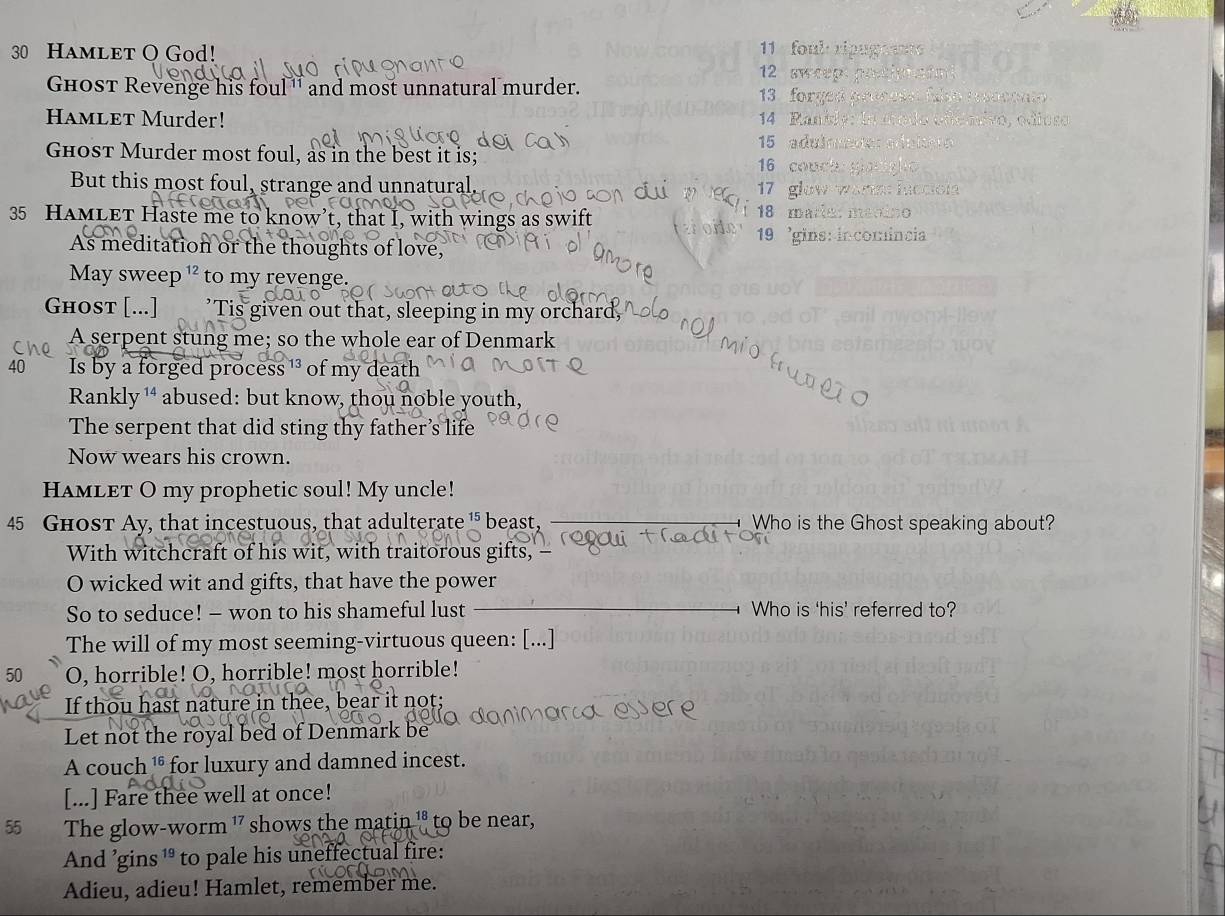 30 HAMLET O God!
Vendica il suo ripugnante
GHOST Revenge his foul 11 and most unnatural murder.
HAMLET Murder!
nel migliore dei casi
GHOST Murder most foul, as in the best it is;
But this most foul, strange and unnatural.
Affrettarti per farmelo sapere, che io con
35 HAMLET Haste me to know't, that I, with wings as swift
come la meditazione o i nostri pensieri d'amore
As meditation or the thoughts of love,
May sweep 12 to my revenge.
È dato per scontato che dormendo nel mio frutteto
GHOST [...] 'Tis given out that, sleeping in my orchard,
punto
A serpent stung me; so the whole ear of Denmark
che sia da della mia morte
40 Is by a forged process 13 of my death
sia
Rankly 14 abused: but know, thou noble youth,
la vita del padre
The serpent that did sting thy father's life
Now wears his crown.
HAMLET O my prophetic soul! My uncle!
45 GHOST Ay, that incestuous, that adulterate 15 beast,
la stregoneria del suo ingenio con regali traditori
With witchcraft of his wit, with traitorous gifts, –
O wicked wit and gifts, that have the power
So to seduce! – won to his shameful lust
The will of my most seeming-virtuous queen: [...]
50 O, horrible! O, horrible! most horrible!
have se hai la natura in te
If thou hast nature in thee, bear it not;
Non lasciare il letto della danimarca essere
Let not the royal bed of Denmark be
A couch 16 for luxury and damned incest.
Addio
[...] Fare thee well at once!
55 The glow-worm 17 shows the matin 18 to be near,
senza effettivo
And 'gins 19 to pale his uneffectual fire:
ricordami
Adieu, adieu! Hamlet, remember me.
11 foul: ripugnante
12 sweep:
13 forged
14 Rankly: odioso
15 adulterate:
16 couch: giaciglio
17 glow-worm: lucciola
18 matin: mattino
19 'gins: incomincia
Who is the Ghost speaking about?
Who is 'his' referred to?